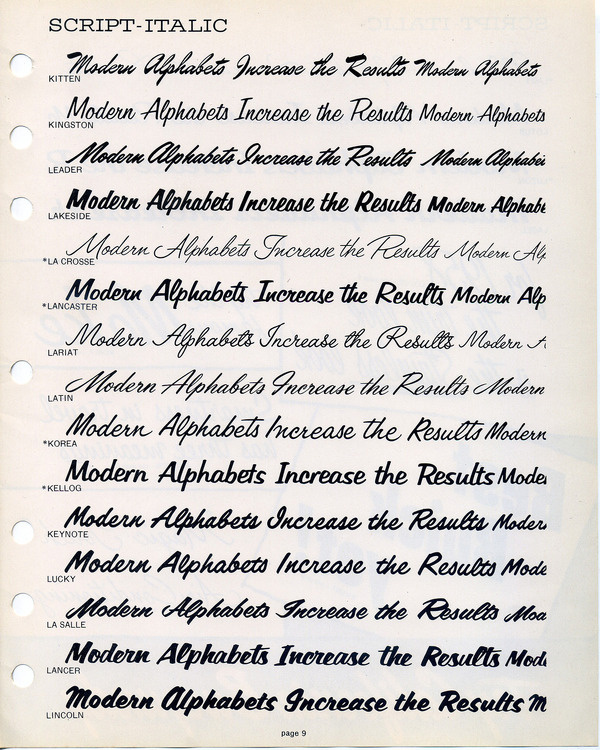 SCRIPT-ITALIC
Modern Alphabets Increase the Results Modern Alphabets
KITTEN
Modern Alphabets Increase the Results Modern Alphabets
KINGSTON
Modern Alphabets Increase the Results Modern Alphabe
LEADER
Modern Alphabets Increase the Results Modern Alphabe
LAKESIDE
Modern Alphabets Increase the Results Modern Alp
*LA CROSSE
Modern Alphabets Increase the Results Modern Alp
*LANCASTER
Modern Alphabets Increase the Results Modern A
LARIAT
Modern Alphabets Increase the Results Modern
LATIN
Modern Alphabets Increase the Results Modern
*KOREA
Modern Alphabets Increase the Results Mode
*KELLOG
Modern Alphabets Increase the Results Moder
KEYNOTE
Modern Alphabets Increase the Results Mode
LUCKY
Modern Alphabets Increase the Results Mod
LA SALLE
Modern Alphabets Increase the Results Mod
LANCER
Modern Alphabets Increase the Results M
LINCOLN
page 9